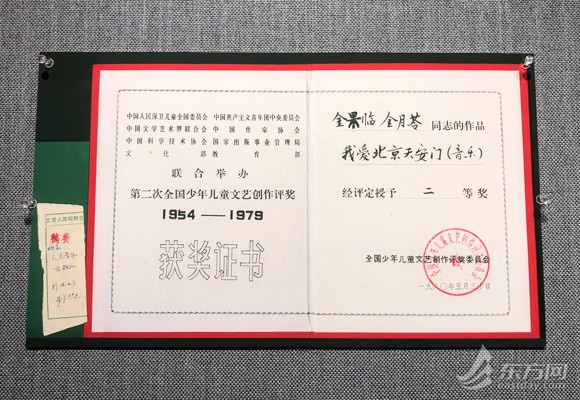 中国人民保卫儿童全国委员会 中国共产主义青年团中央委员会
中国文学艺术界联合会 中国作家协会
中国科学技术协会 国家出版事业管理局
文化部 教育部
联合举办
第二次全国少年儿童文艺创作评奖
1954——1979
获奖证书
金果临 金月苓 同志的作品
我爱北京天安门(音乐)
经评定授予 二 等奖
全国少年儿童文艺创作评奖委员会
一九八〇年五月三十日
东方网
eastday.com